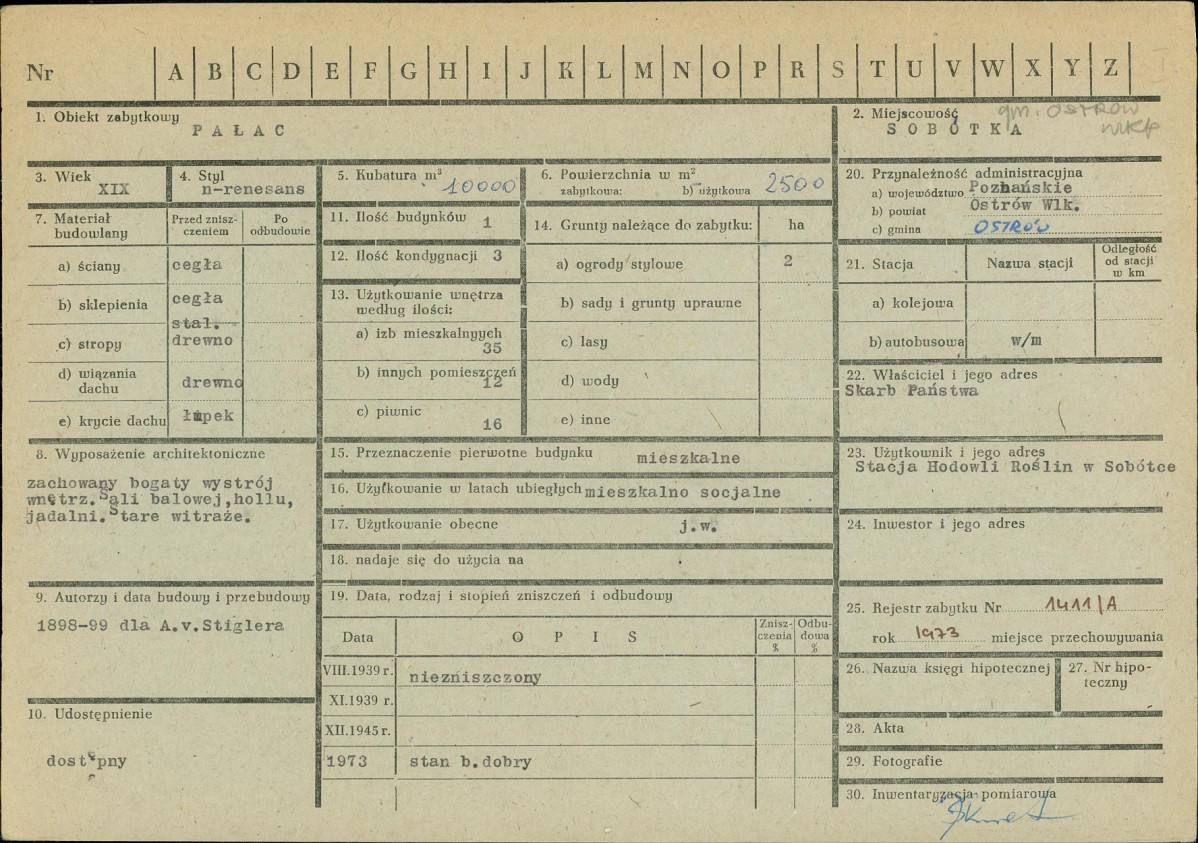 Nr A B C D E F G H I J K L M N O P R S T U V W X Y Z
1. Obiekt zabytkowy
PAŁAC
2. Miejscowość
gm. OSTRÓW
WLKP
SOBÓTKA
3. Wiek
XIX
4. Styl
n-renesans
5. Kubatura m³ 10000
6. Powierzchnia w m²
zabytkowa: b) użytkowa 2500
7. Materiał budowlany
Przed zniszczeniem
Po odbudowie
a) ściany cegła
b) sklepienia cegła
stal.
c) stropy drewno
d) wiązania
dachu drewno
e) krycie dachu łupek
8. Wyposażenie architektoniczne
zachowany bogaty wystrój
wnętrz. Sali balowej,hollu,
jadalni. Stare witraże.
9. Autorzy i data budowy i przebudowy
1898-99 dla A.v.Stiglera
10. Udostępnienie
dostępny
11. Ilość budynków 1
12. Ilość kondygnacji 3
13. Użytkowanie wnętrza
według ilości:
a) izb mieszkalnych
35
b) innych pomieszczeń
12
c) piwnic
16
14. Grunty należące do zabytku: ha
a) ogrody stylowe 2
b) sady i grunty uprawne
c) lasy
d) wody
e) inne
15. Przeznaczenie pierwotne budynku mieszkalne
16. Użytkowanie w latach ubiegłych mieszkalno socjalne
17. Użytkowanie obecne j.w.
18. nadaje się do użycia na
19. Data, rodzaj i stopień zniszczeń i odbudowy
Data OPIS Zniszczenia % Odbudowa %
VIII.1939 r. niezniszczony
XI.1939 r.
XII.1945 r.
1973 stan b.dobry
20. Przynależność administracyjna
a) województwo Poznańskie
b) powiat Ostrów Wlk.
c) gmina OSTRÓW
21. Stacja Nazwa stacji Odległość od stacji w km
a) kolejowa
b) autobusowa w/m
22. Właściciel i jego adres
Skarb Państwa
23. Użytkownik i jego adres
Stacja Hodowli Roślin w Sobótce
24. Inwestor i jego adres
25. Rejestr zabytku Nr 1411/A
rok 1973 miejsce przechowywania
26. Nazwa księgi hipotecznej
27. Nr hipoteczny
28. Akta
29. Fotografie
30. Inwentaryzacja pomiarowa